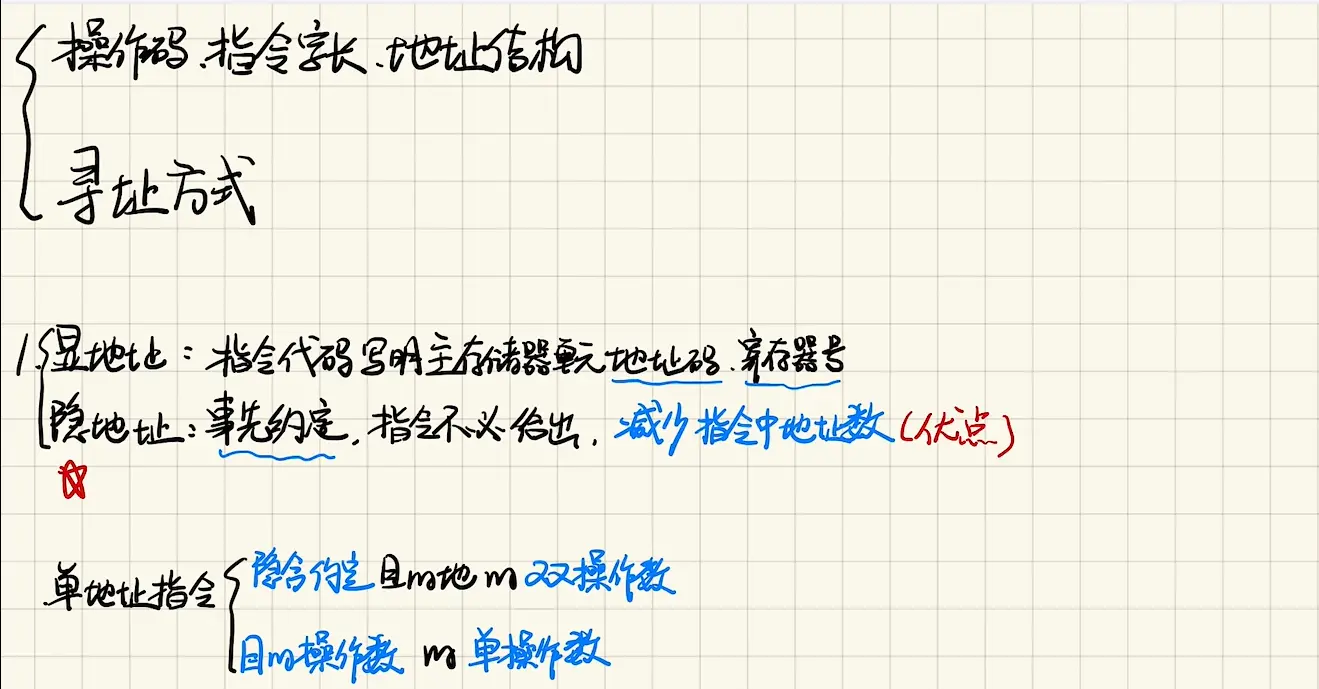 操作码、指令字长、地址结构
寻址方式
1. 显地址：指令代码写明主存储器单元地址码、寄存器号
隐地址：事先约定，指令不必给出，减少指令中地址数（优点）
单地址指令
隐含约定目的地的双操作数
目的操作数的单操作数